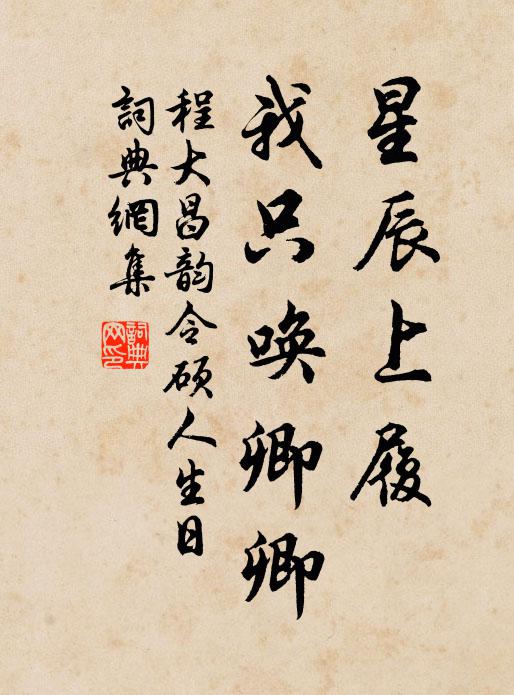 星辰上履
我只唤卿卿
程大昌韵令硕人生日
詞典網集
詞典网印